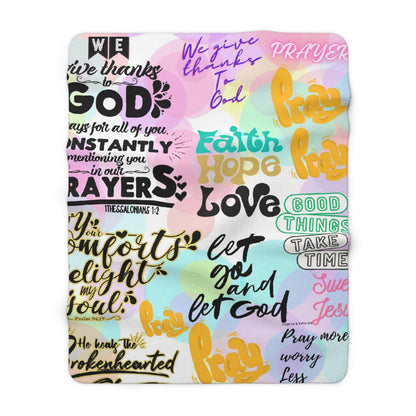 WE
give thanks
to
GOD
ays for all of you,
ONSTANTLY
mentioning you
in our
RAYERS
1THESSALONIANS 1:2
We give
thanks
To
God
PRAYER
Pray
Pray
Faith
Hope
Love
GOOD
THINGS
TAKE
TIME
Y your
omforts
elight
my
Soul.
Psalm 94:19
let
go
and
let God
Swe
Jesu
Pray
Pray
Pray more
worry
Less
He heals the
rokenhearted